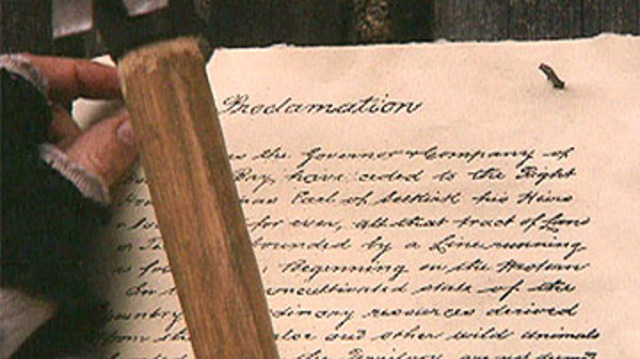 Proclamation
the Governor & Company of
Bay have ceded to the Right
Earl of Selkirk his Heirs
for ever, all that tract of Land
bounded by a Line running
Beginning on the Western
uncultivated state of the
ordinary resources derived
and other wild animals
the Territory are not